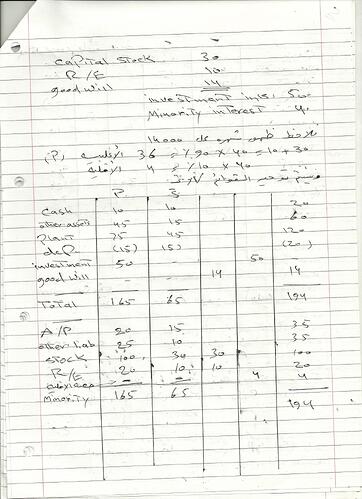 capital stock 30
R/E 10
good will 14
investment in (S) 50
Minority interest 4
نلاحظ ظهور شهرة محل 14000
(P) الأغلبية 36 = 90% × 40 = 10 + 30
الأقلية 4 = 10% × 40
P S
Cash 10 10 20
other assets 45 15 60
Plant 75 45 120
deP (15) (5) (20)
investment 50 50 -
good will - - 14 14
Total 165 65 194
A/P 20 15 35
other liab 25 10 35
stock 100 30 30 100
R/E 20 10 10 20
- - 4 4
Minority 165 65 194